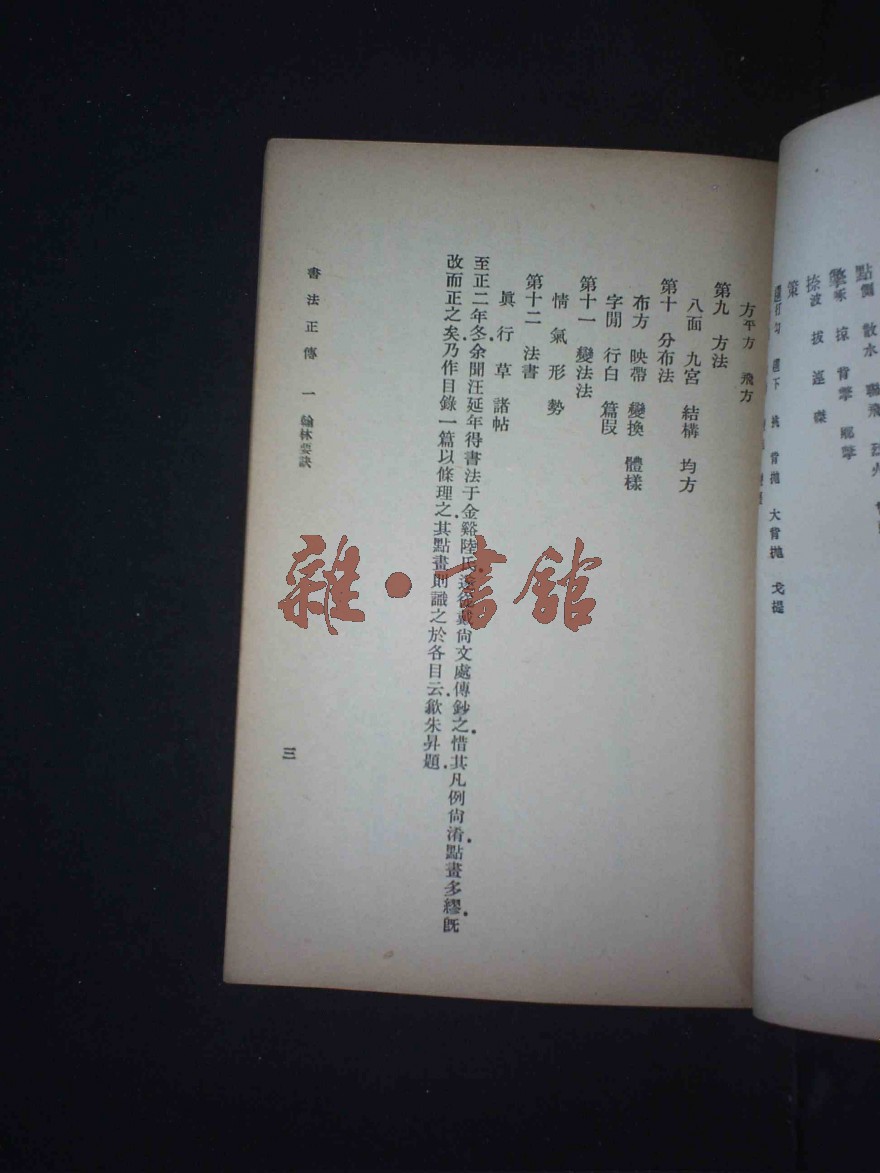 點
散水
掠
捺波 拔 逕 磔
策
挑 背抛 大背抛 戈提
方平方 飛方
第九 方法
八面 九宮 結構 均方
第十 分布法
布方 映帶 變換 體樣
字閒 行白 篇段
第十一 變法法
情 氣 形 勢
第十二 法書
眞 行 草 諸帖
至正二年冬余聞汪延年得書法于金谿陸氏遂從戴尙文處傳鈔之惜其凡例尙淆點畫多繆旣
改而正之矣乃作目錄一篇以條理之其點畫則識之於各目云歙朱昇題
書法正傳 一 翰林要訣
三
雜·書館